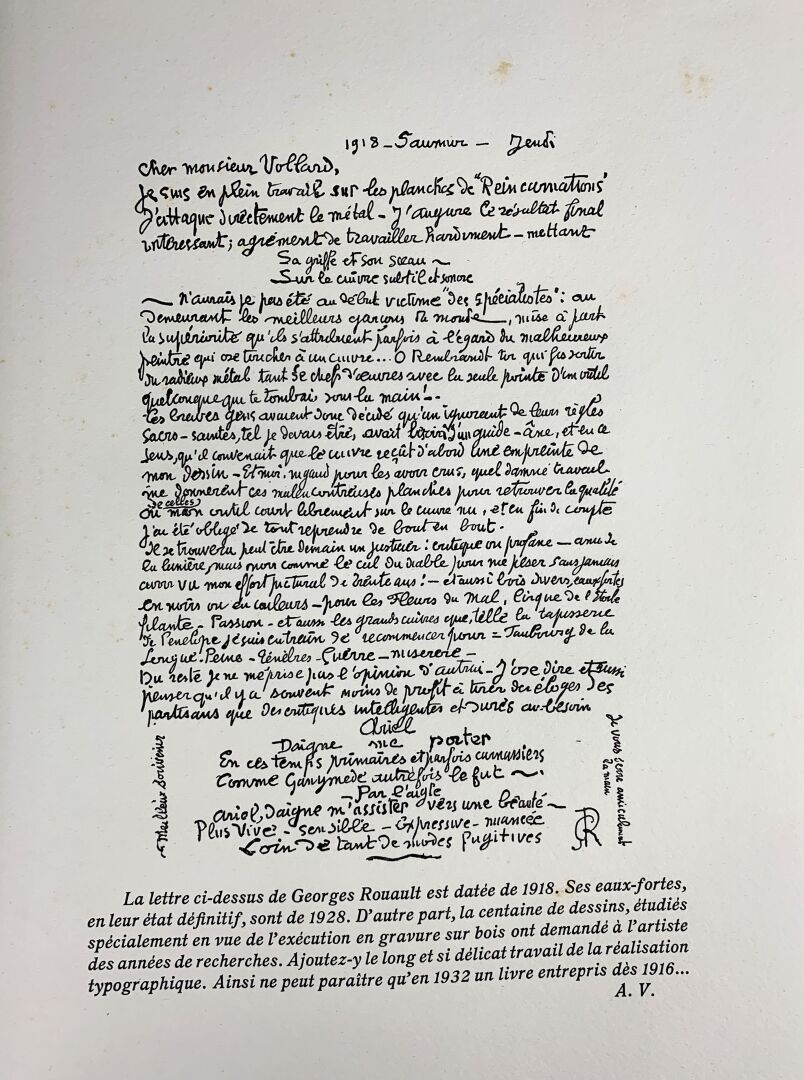 1918 – Saumur – Jeudi
Cher monsieur Vollard,
Je suis en plein travail sur les planches de "Reincarnations"
J'attaque directement le métal – J'augure le résultat final
intéressant; agrément de travailler hardiment – mettant
Sa griffe et son sceau ~
Sur le cuivre subtil et sonore
— N'aurais je pas été au début victime "des spécialistes": au
demeurant les meilleurs garçons du monde —, mise à part
la supériorité qu'ils s'attribuent parfois à l'égard du malheureux
peintre qui ose toucher à un cuivre... O Rembrandt toi qui fis sortir
du radieux métal tant de chefs d'œuvres avec la seule pointe d'un outil
quelconque qui te tombait sous la main!..
Ces braves gens avaient donc décidé qu'un ignorant de leurs règles
Sacro-saintes, tel je devais être, avait besoin d'un guide-âne, et en ce
Sens, qu'il convenait que le cuivre reçût d'abord une empreinte de
mon dessin – Et moi, nigaud pour les avoir crus, quel damné travail
me donnèrent ces malencontreuses planches pour retrouver la qualité
de celles
où mon outil court librement sur le cuivre nu, et en fin de compte
J'ai été obligé de tout reprendre de bout en bout.
Il se trouvera peut être demain un justicier: critique ou profane – ami de
la lumière, mais noir comme le cul du diable pour me peser sans jamais
avoir vu mon effort pictural de trente ans! – et aussi bois divers, eaux-fortes
en noirs ou en couleurs – pour les Fleurs du Mal, Cirque de l'Étoile
filante – Passion – et aussi les grands cuivres que, telle la tapisserie
de Pénélope je suis en train de recommencer pour = Faubourg de la
Longue-Peine – Ténèbres – Guerre – Miserere –
Du reste je ne méprise pas l'opinion d'autrui – J'ose dire et aussi
penser qu'il y a souvent moins de profit à tirer des éloges des
partisans que des critiques intelligentes et dures au besoin
Ariel
Daigne me porter
En ces temps primaires et parfois carnassiers
Comme Ganymède autrefois le fut ~.
– Par l'aigle
Ariel, Daigne m'assister vers une beauté ~
Plus Vive – sensible – Expressive – nuancée
Loin de tant de modes fugitives
Meilleur souvenir
Je vous serre amicalement
la main
GR
La lettre ci-dessus de Georges Rouault est datée de 1918. Ses eaux-fortes,
en leur état définitif, sont de 1928. D'autre part, la centaine de dessins, étudiés
spécialement en vue de l'exécution en gravure sur bois ont demandé à l'artiste
des années de recherches. Ajoutez-y le long et si délicat travail de la réalisation
typographique. Ainsi ne peut paraître qu'en 1932 un livre entrepris dès 1916...
A. V.